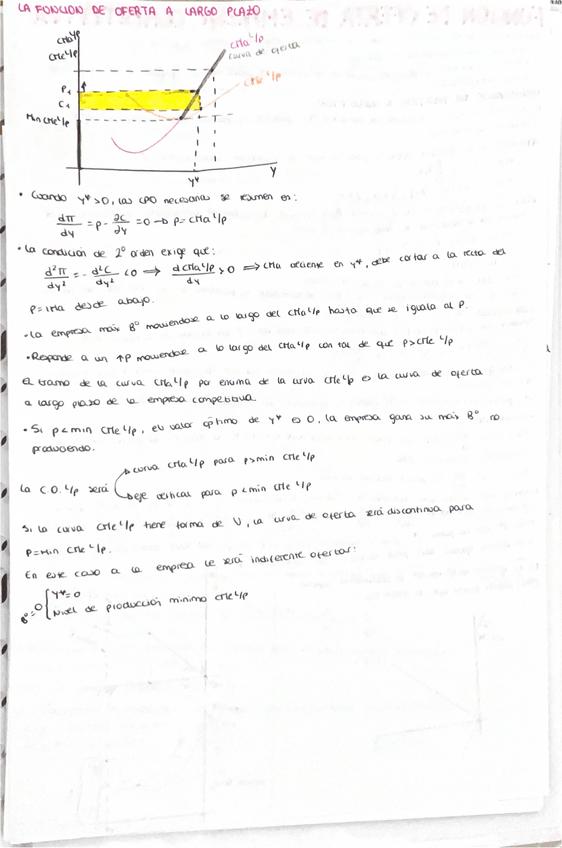 LA FUNCION DE OFERTA A LARGO PLAZO
CMa L/p
CMe L/p
CMa L/p
curva de oferta
CMe L/p
P₁
C₁
Min CMe L/p
Y*
Y
• Cuando Y*>0, las CPO necesarias se resumen en:
dπ/dy = p - ∂C/∂y = 0 → p = CMa L/p
• La condición de 2º orden exige que:
d²π/dy² = - d²C/dy² <0 ⟹ dCMa L/p/dy > 0 ⟹ CMa creciente en y*, debe cortar a la recta del
P=IMa desde abajo.
• La empresa máx Bº moviendose a lo largo del CMa L/p hasta que se iguala al P.
• Responde a un ↑P moviendose a lo largo del CMa L/p con tal de que p>CMe L/p
El tramo de la curva CMa L/p por encima de la curva CMe L/p es la curva de oferta
a largo plazo de la empresa competitiva.
• Si p<min CMe L/p, el valor óptimo de Y* es 0, la empresa gana su máx Bº no
produciendo.
La C.O. L/p será
curva CMa L/p para p>min CMe L/p
eje vertical para p<min CMe L/p
Si la curva CMe L/p tiene forma de U, la curva de oferta será discontinua para
P=Min CMe L/p.
En este caso a la empresa le será indiferente ofertar:
Bº=0 { Y*=0
Nivel de producción mínimo CMe L/p